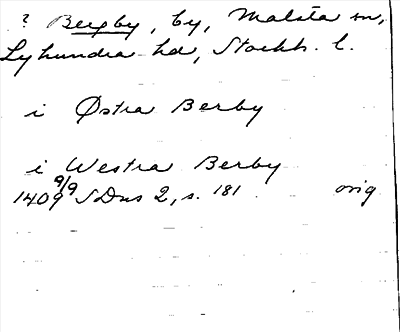 ? Bergby, by, Malsta sn,
Lyhundra hd, Stockh. l.
i Østra Berby
i Westra Berby
1409 9/9 SDns 2, s. 181. orig